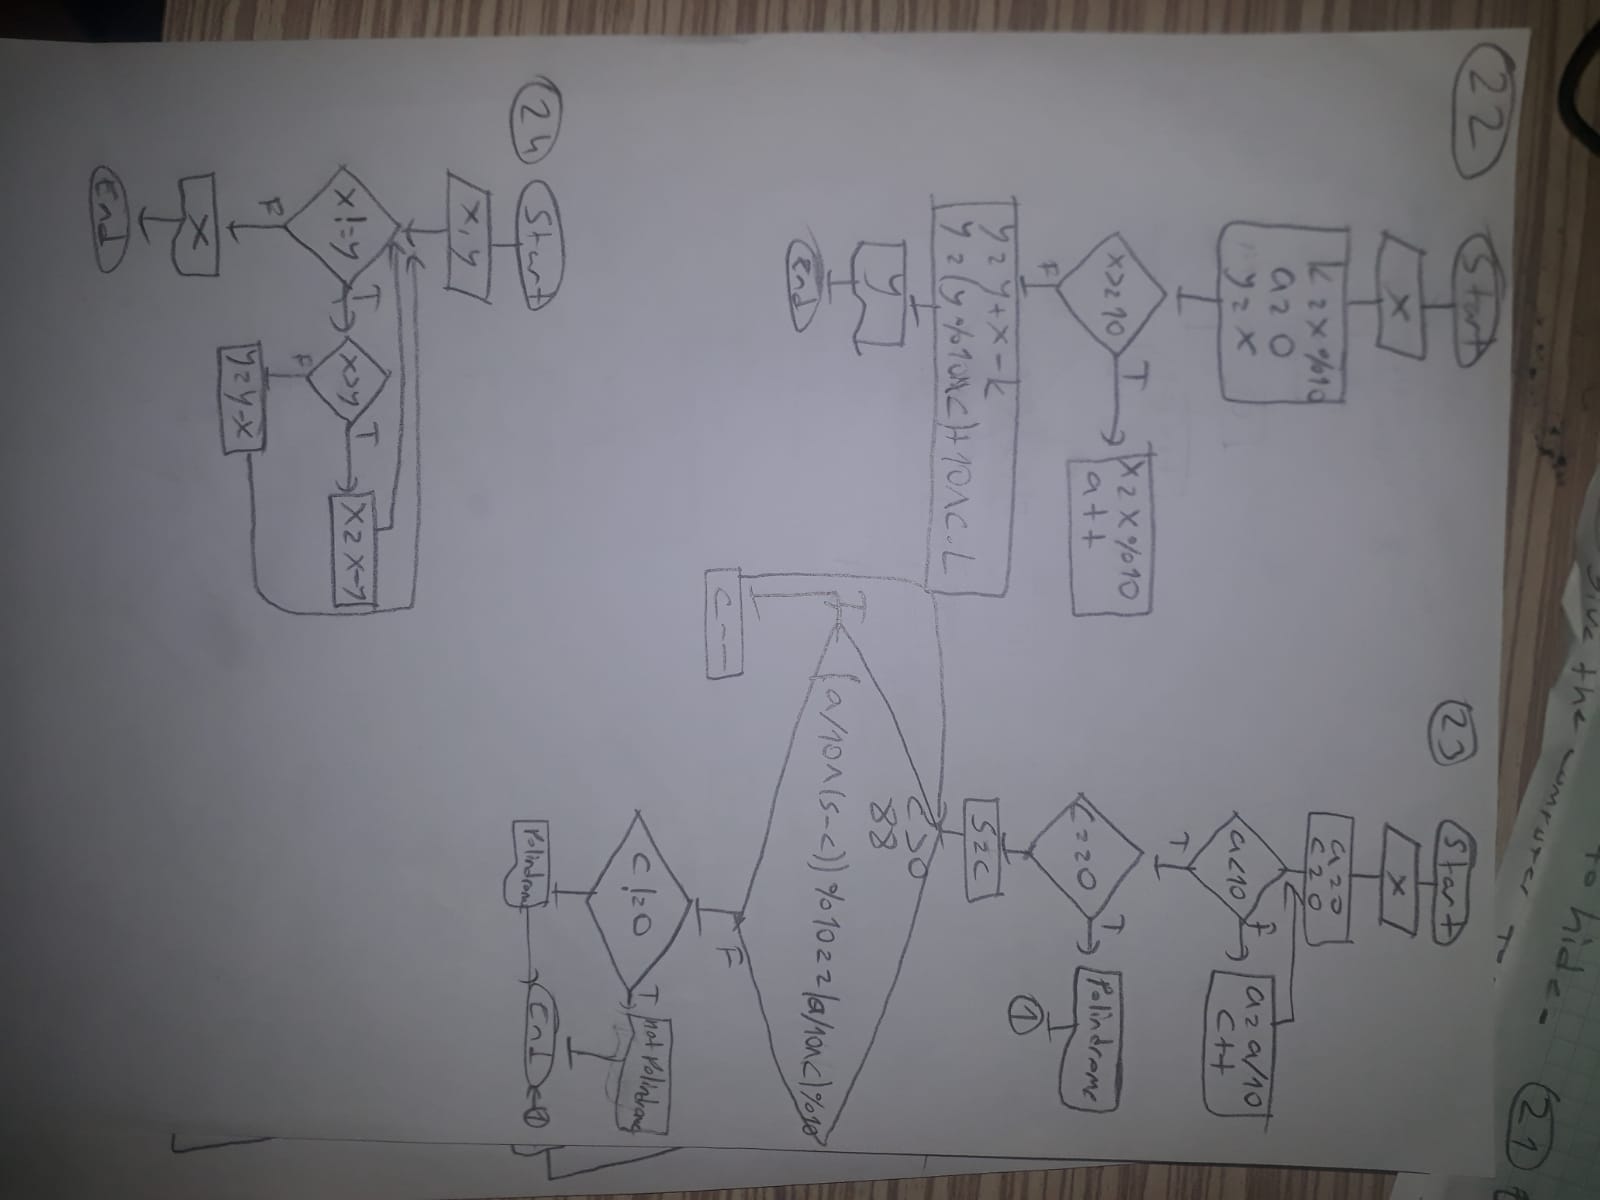 give the computer to
to hide.
21
22
Start
x
k=x%10
a=0
y=x
x>=10
T
x=x%10
a++
F
y=y+x-k
y=(y%10^c)+10^c.L
y
End
23
Start
x
a=0
c=0
a<10
F
a=a/10
c++
T
c==0
T
Polindrome
1
s=c
c>0
&&
(a/10^(s-c))%10==(a/10^c)%10
T
c--
F
c!=0
T
not Polindrome
Polindrome
End
1
24
Start
x,y
x!=y
T
x>y
T
x=x-y
F
y=y-x
F
x
End